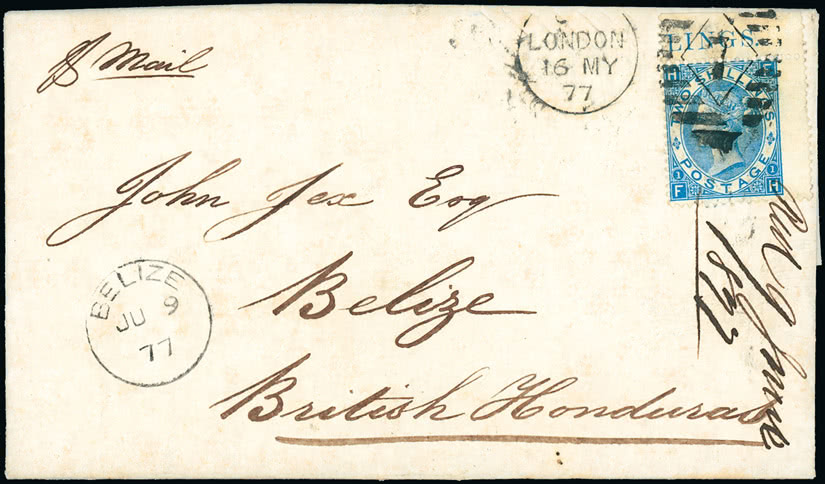 ℘ Mail
LONDON
16 MY
77
LINGS.
H F
TWO SHILLINGS
1 POSTAGE 1
F H
John Jex Esq
Belize
British Honduras
BELIZE
JU 9
77
9 June
1877